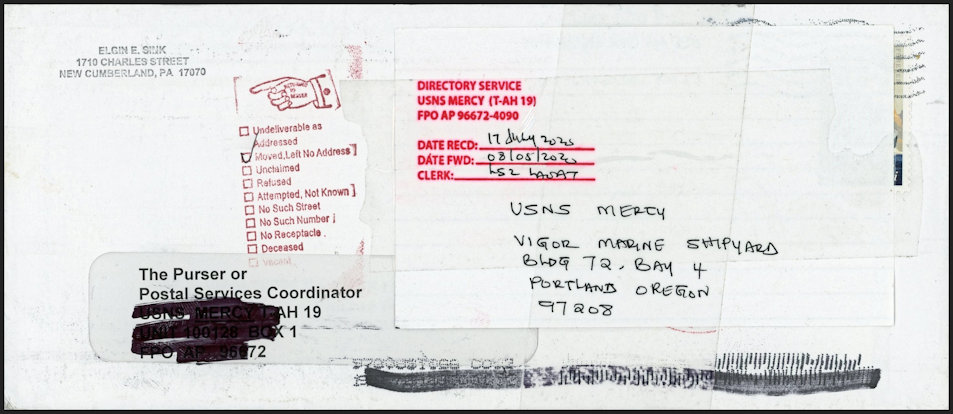 ELGIN E. SINK
1710 CHARLES STREET
NEW CUMBERLAND, PA 17070
RETURNED
TO
SENDER
Undeliverable as
Addressed
Moved, Left No Address
Unclaimed
Refused
Attempted, Not Known
No Such Street
No Such Number
No Receptacle
Deceased
Vacant
DIRECTORY SERVICE
USNS MERCY (T-AH 19)
FPO AP 96672-4090
DATE RECD: 17 July 2020
DATE FWD: 08/05/2020
CLERK: LS2
USNS MERCY
VIGOR MARINE SHIPYARD
BLDG 72, BAY 4
PORTLAND OREGON
97208
The Purser or
Postal Services Coordinator
USNS MERCY T-AH 19
UNIT 100128 BOX 1
FPO AP 96672